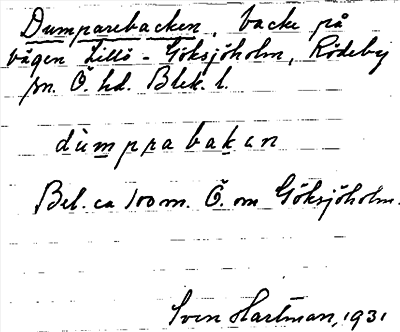 Dumparebacken, backe på
vägen Lillö - Göksjöholm, Rödeby
sn. Ö. hd. Blek. l.
dùmprabakan
Bel. ca 100 m. Ö. om Göksjöholm.
Sven Hartman, 1931